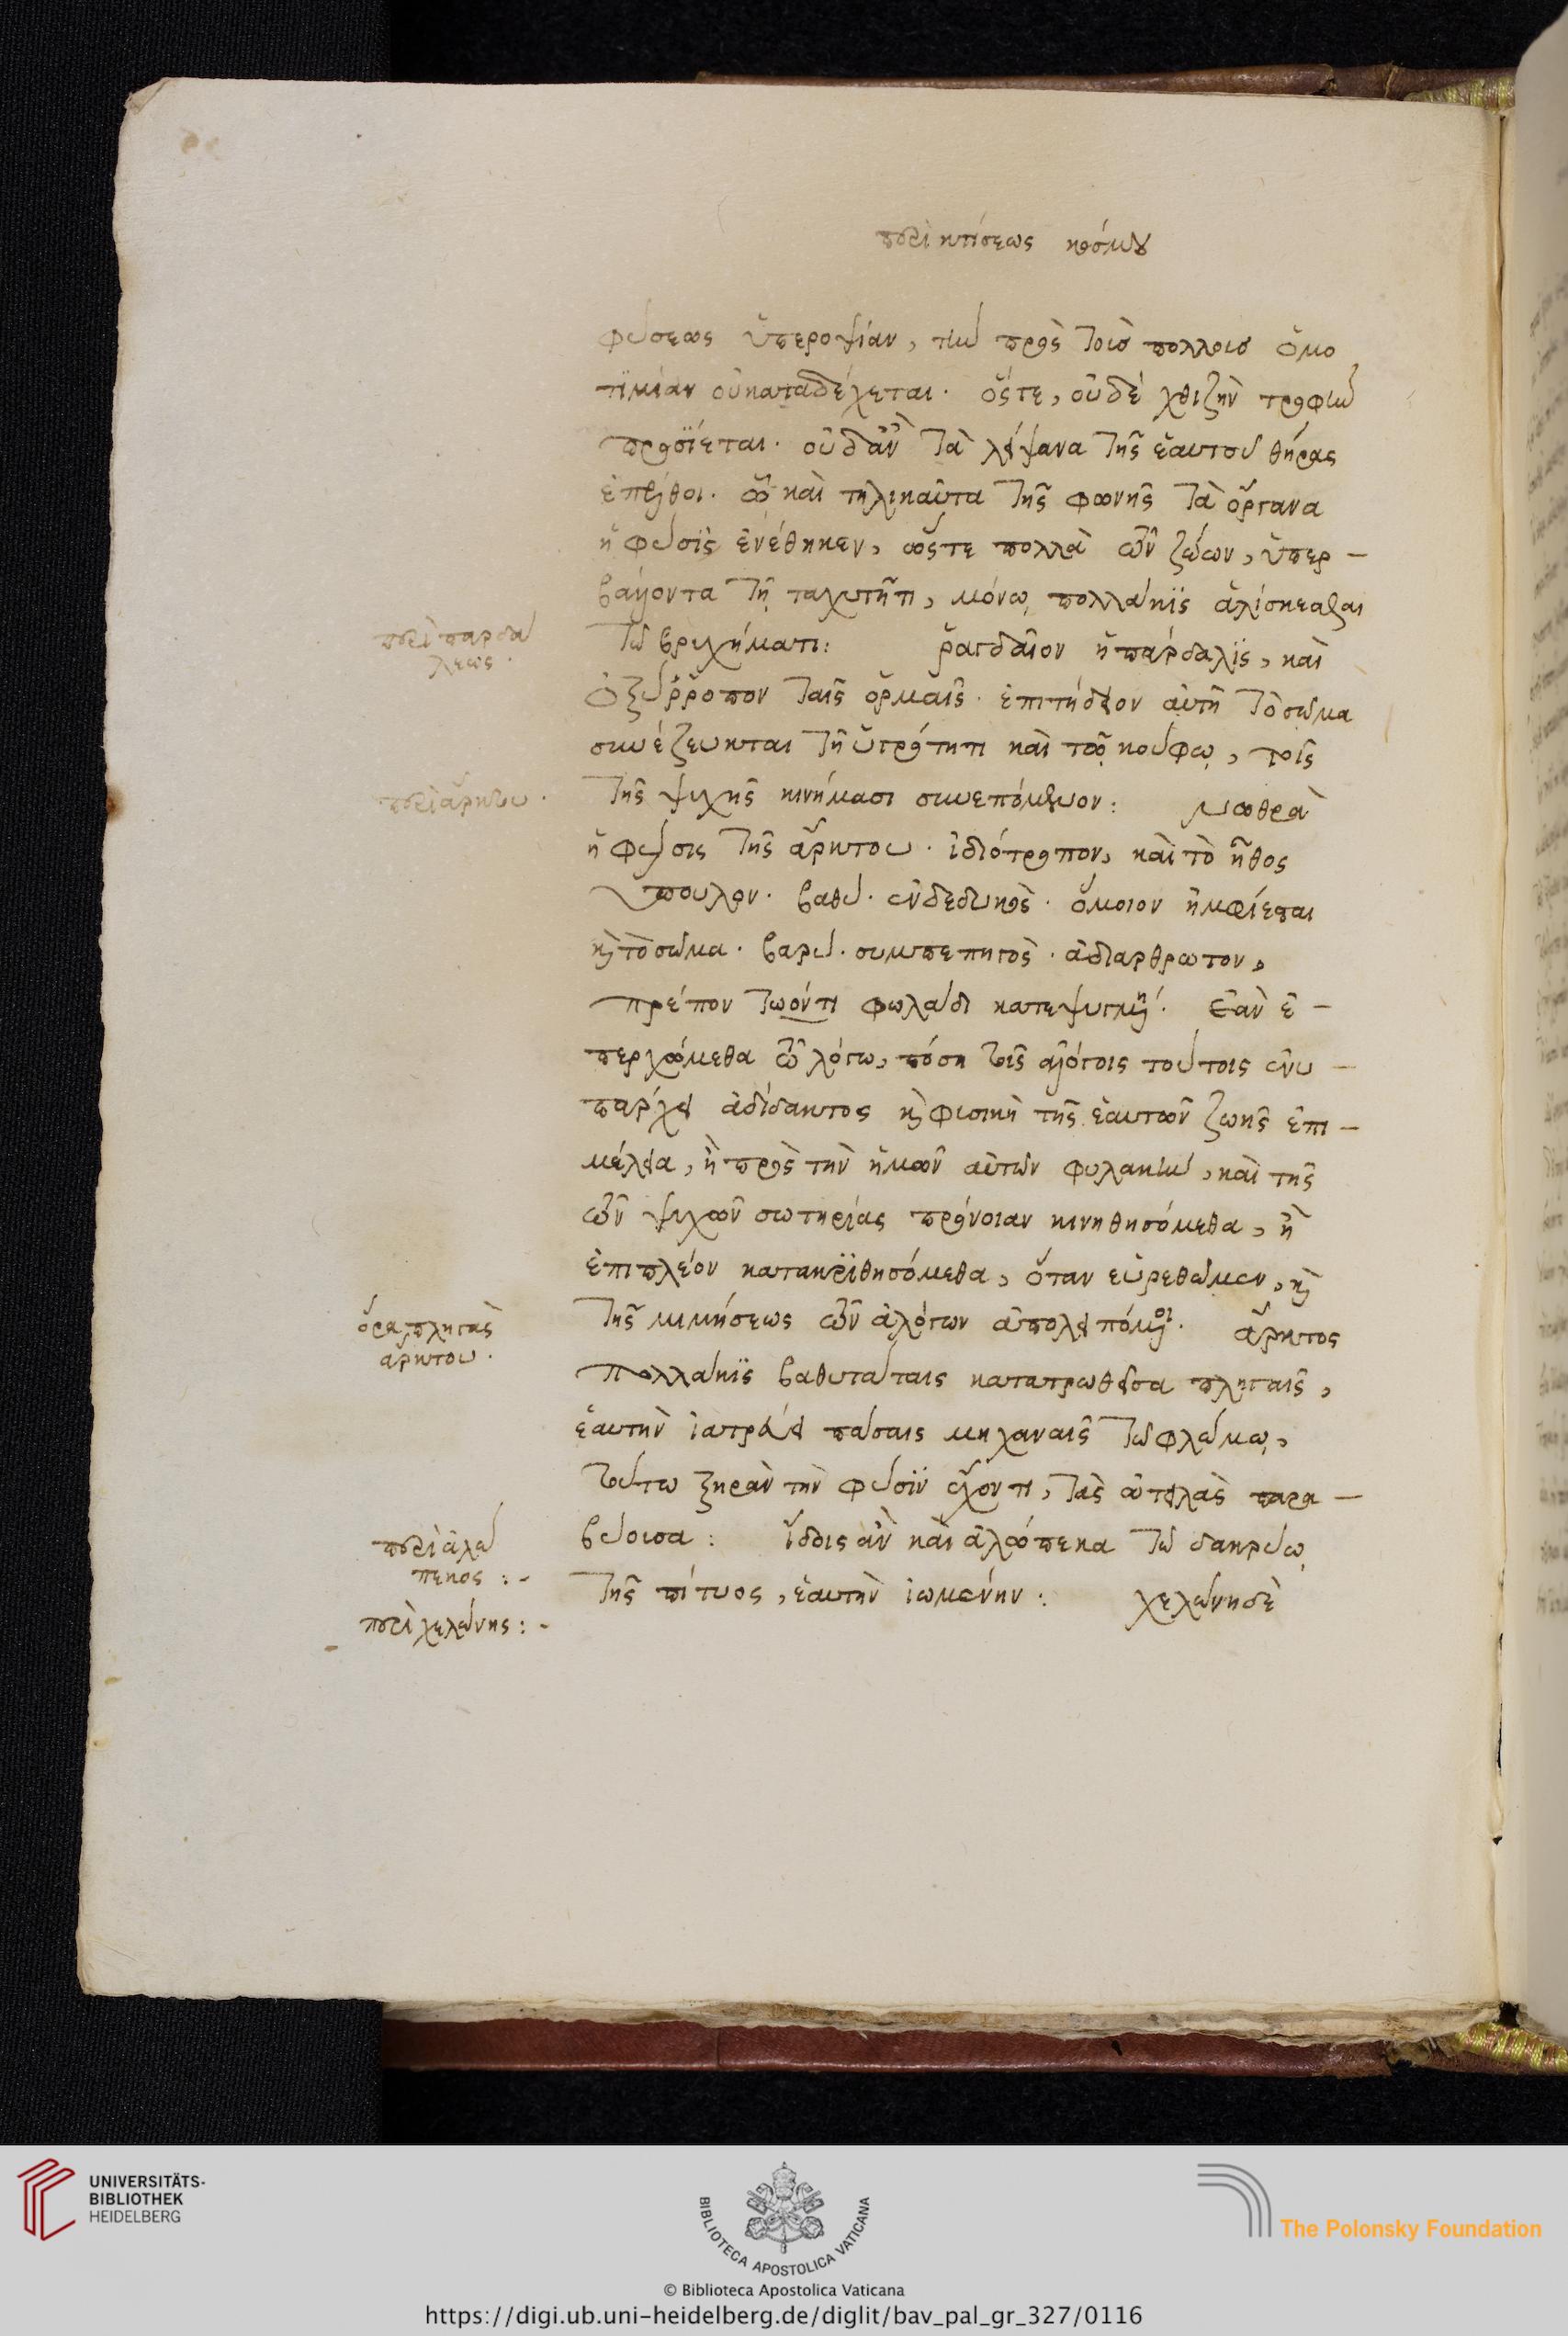 περὶ κτίσεως κόσμου
φύσεως ὑπεροψίαν, τὴν πρὸς τοῖς πολλοῖς ὁμο
τιμίαν οὐ καταδέχεται. ὅς τε, οὐδὲ χθιζὴν τροφὴν
προσΐεται. οὐδ' ἂν τὰ λείψανα τῆς ἑαυτοῦ θήρας
ἐπέλθοι. ᾧ καὶ τηλικαῦτα τῆς φωνῆς τὰ ὄργανα
ἡ φύσις ἐνέθηκεν, ὥς τε πολλὰ τῶν ζώων, ὑπερ-
βαίνοντα τῇ ταχυτῆτι, μόνῳ πολλάκις ἁλίσκεσθαι
τῷ βρυχήματι: ῥαγδαῖον ἡ πάρδαλις, καὶ
ὀξύρροπον ταῖς ὁρμαῖς. ἐπιτήδειον αὐτῇ τὸ σῶμα
συνέζευκται τῇ ὑγρότητι καὶ τῷ κούφῳ, τοῖς
τῆς ψυχῆς κινήμασι συνεπόμενον: νωθρὰ
ἡ φύσις τῆς ἄρκτου. ἰδιότροπον, καὶ τὸ ἦθος
ὕπουλον. βαθύ. ἐνδεδυκός. ὅμοιον ἠμφίεσται
καὶ τὸ σῶμα. βαρύ. συμπεπηγὸς. ἀδιάρθρωτον,
πρέπον τῷ ὄντι φωλάδι κατεψυγμένῃ. Ἐὰν ἐ-
περχώμεθα τῷ λόγῳ, πόση τοῖς ἀλόγοις τούτοις ἐνυ-
πάρχει ἀδίδακτος καὶ φυσικὴ τῆς ἑαυτῶν ζωῆς ἐπι-
μέλεια, ἢ πρὸς τὴν ἡμῶν αὐτῶν φυλακὴν, καὶ τῆς
τῶν ψυχῶν σωτηρίας πρόνοιαν κινηθησόμεθα, ἢ
ἐπιπλέον κατακριθησόμεθα, ὅταν εὑρεθῶμεν, καὶ
τῆς μιμήσεως τῶν ἀλόγων ἀπολειπόμενοι. ἄρκτος
πολλάκις βαθυτάταις κατατρωθεῖσα πληγαῖς,
ἑαυτὴν ἰατρεύει πάσαις μηχαναῖς τῷ φλώμῳ,
τούτῳ ξηρὰν τὴν φύσιν ἔχοντι, τὰς ὠτειλὰς παρα-
βύουσα: ἴδοις ἂν καὶ ἀλώπεκα τῷ δακρύῳ
τῆς πίτυος, ἑαυτὴν ἰωμένην: χελώνη δὲ
περὶ παρδά
λεως.
περὶ ἄρκτου.
ὅρα πληγὰς
ἄρκτου.
περὶ ἀλώ
πεκος:-
περὶ χελώνης:-
UNIVERSITÄTS-
BIBLIOTHEK
HEIDELBERG
BIBLIOTECA APOSTOLICA VATICANA
© Biblioteca Apostolica Vaticana
The Polonsky Foundation
https://digi.ub.uni-heidelberg.de/diglit/bav_pal_gr_327/0116